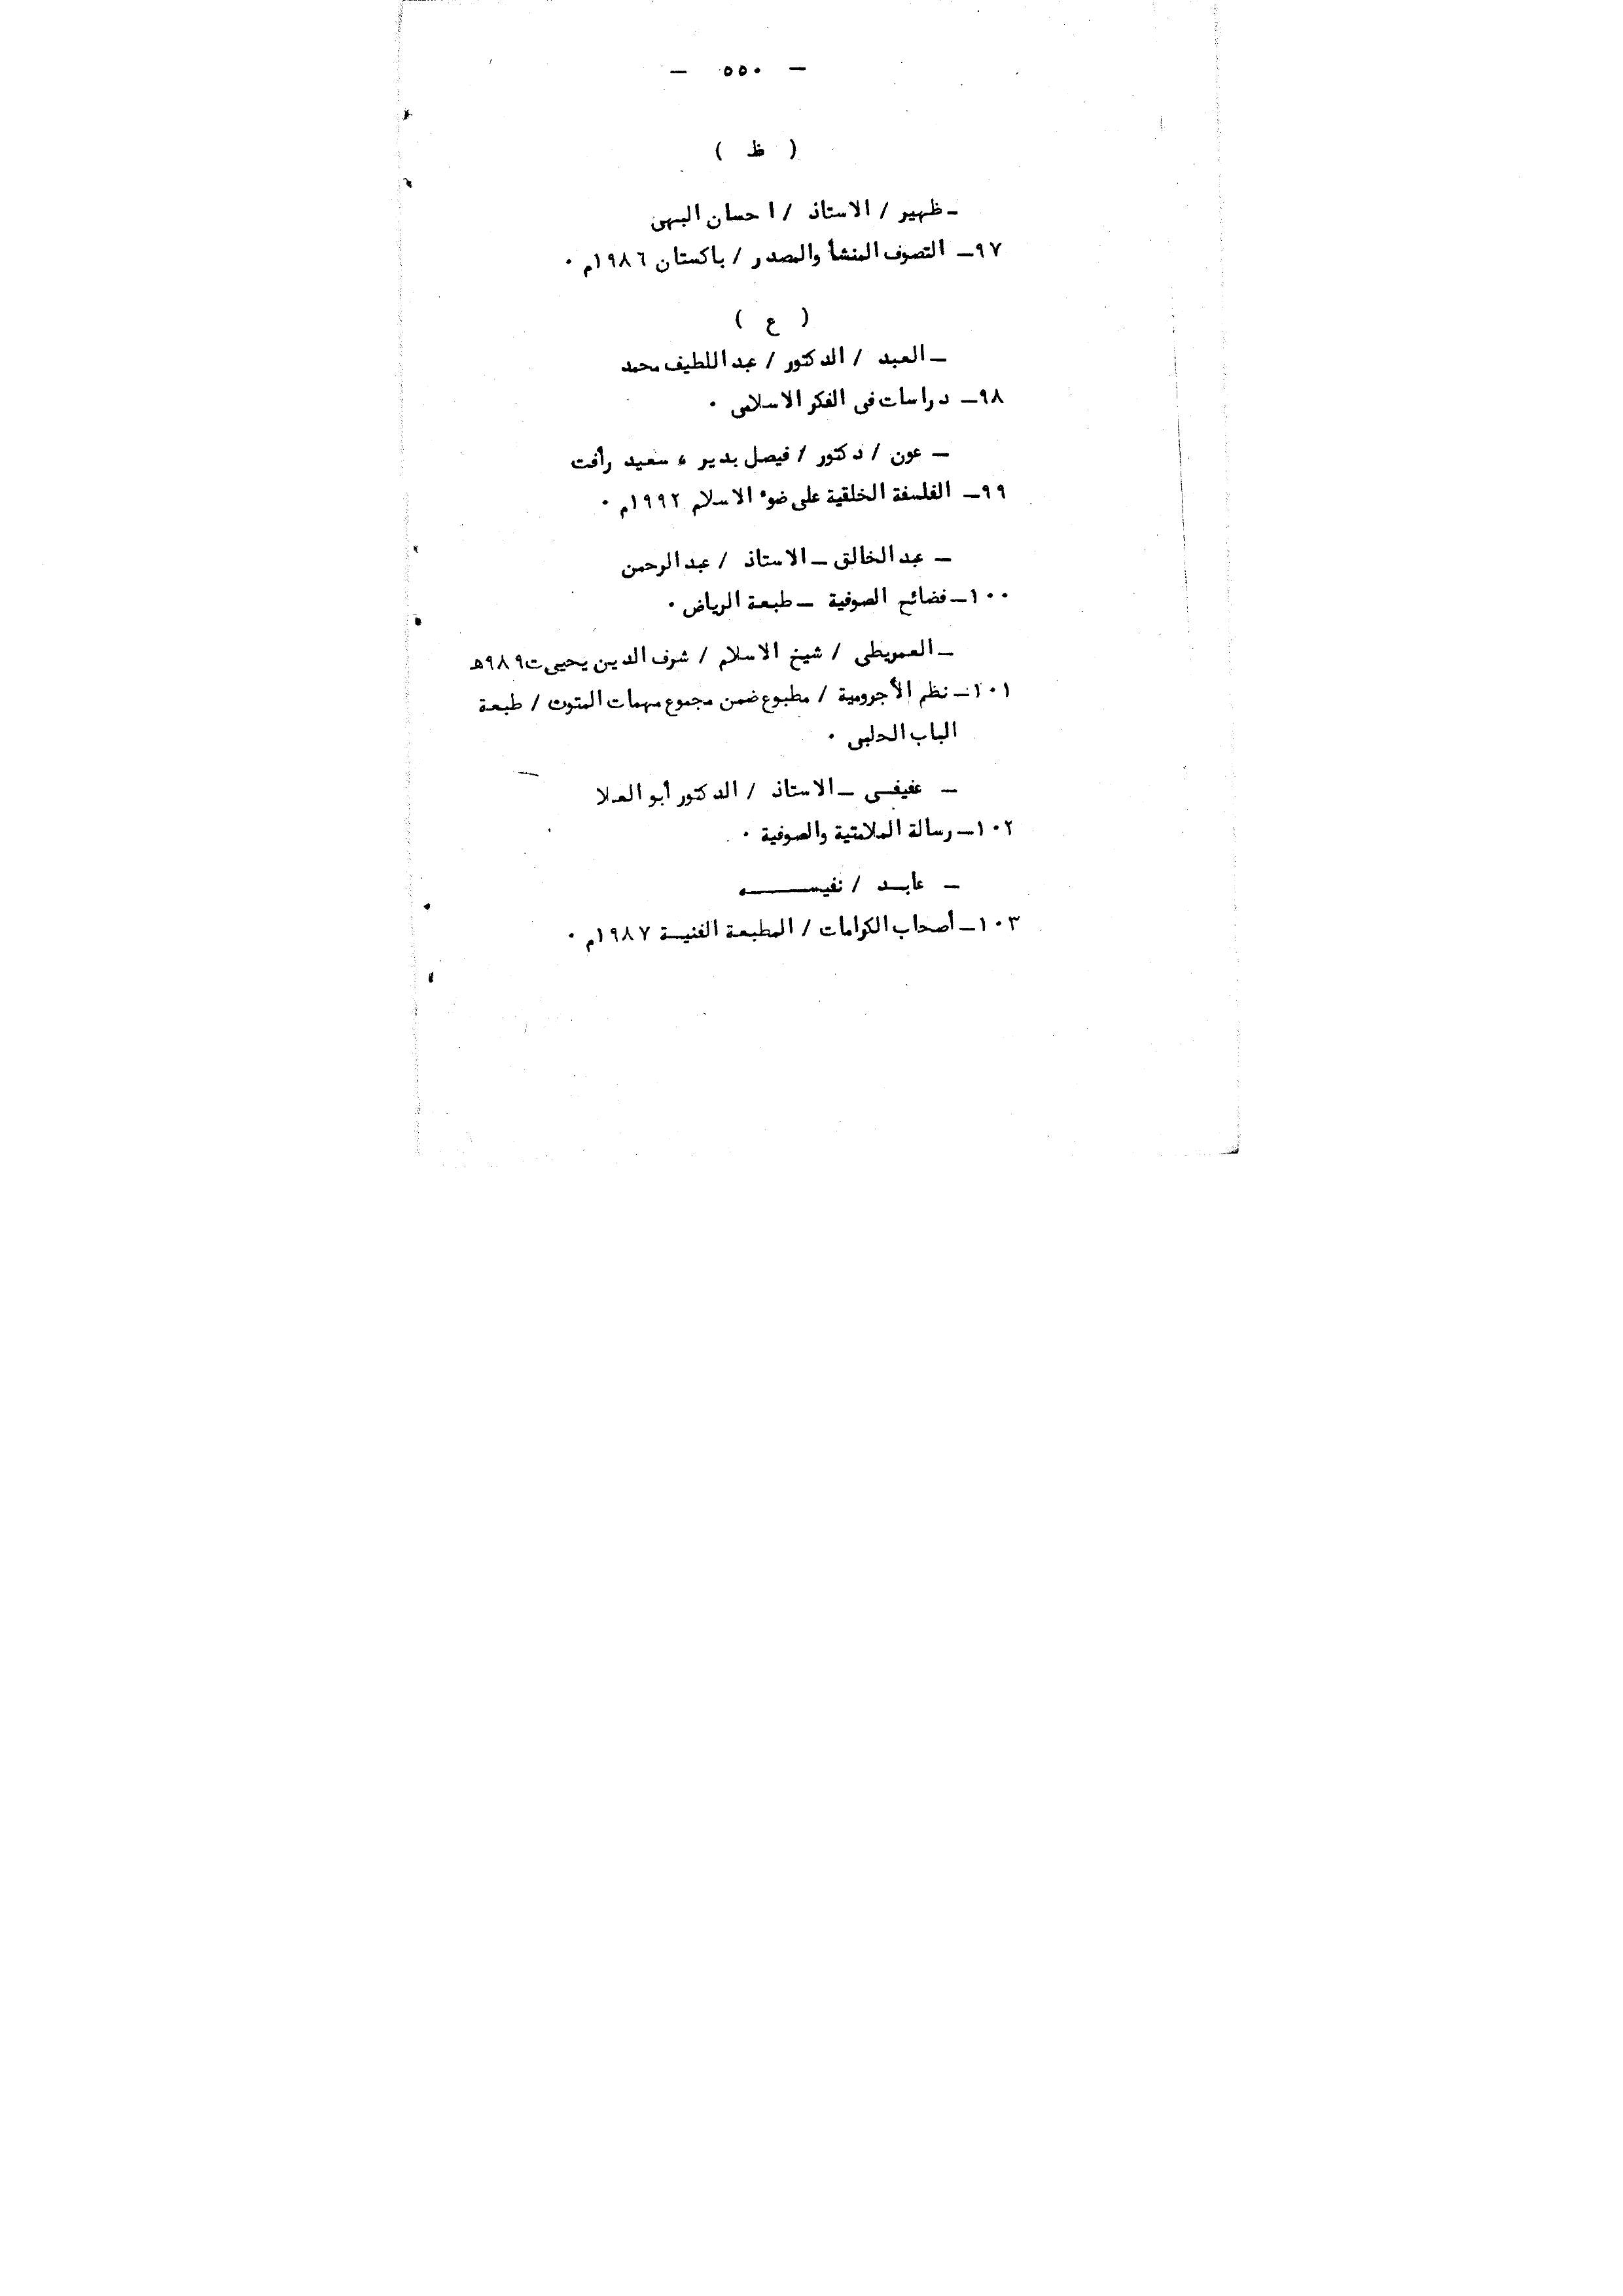 — ٥٥٠ —
( ظ )
ـ ظهير / الاستاذ / احسان الهى
٩٧ـ التصوف المنشأ والمصدر / باكستان ١٩٨٦م ٠
( ع )
ـ العبد / الدكتور / عبد اللطيف محمد
٩٨ـ دراسات فى الفكر الاسلامى ٠
ـ عون / دكتور / فيصل بدير ، سعيد رأفت
٩٩ـ الفلسفة الخلقية على ضوء الاسلام ١٩٩٢م ٠
ـ عبد الخالق ـ الاستاذ / عبد الرحمن
١٠٠ـ فضائح الصوفية ـ طبعة الرياض ٠
ـ العمريطى / شيخ الاسلام / شرف الدين يحيى ت٩٨٩هـ
١٠١ـ نظم الأجرومية / مطبوع ضمن مجموع مهمات المتوت / طبعة
الباب الحلبى ٠
ـ عفيفـى ـ الاستاذ / الدكتور أبو العلا
١٠٢ـ رسالة الملامتية والصوفية ٠
ـ عابـد / نفيســـــه
١٠٣ـ أصحاب الكرامات / المطبعة الفنيـة ١٩٨٧م ٠